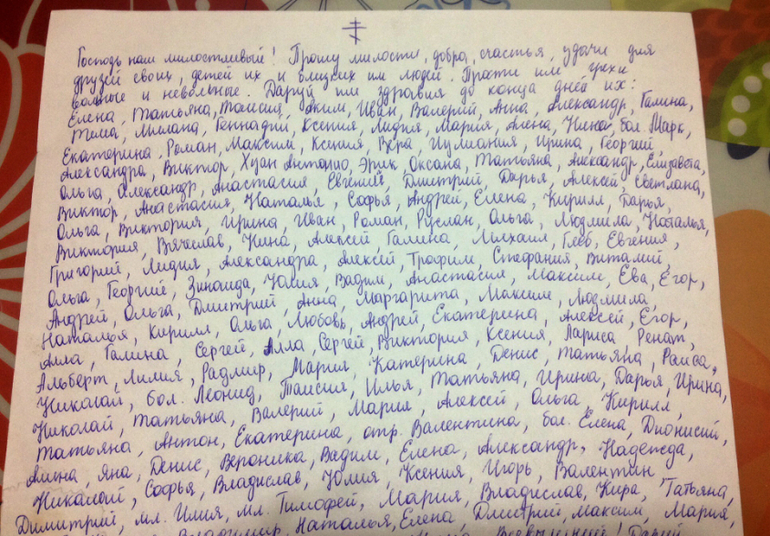 Господь наш милостливый! Прошу милости, добра, счастья, удачи для
друзей своих, детей их и близких им людей. Прости им грехи
вольные и невольные. Даруй им здравия до конца дней их:
Елена, Татьяна, Таисия, Аким, Иван, Валерий, Анна, Александр, Галина,
Тима, Милана, Геннадий, Ксения, Лидия, Мария, Алена, Нина, бол. Марк,
Екатерина, Роман, Максим, Ксения, Вера, Иулиания, Ирина, Георгий
Александра, Виктор, Хуан Антонио, Эрик, Оксана, Татьяна, Александр, Елизавета,
Ольга, Александр, Анастасия, Евгений, Дмитрий, Дарья, Алексей, Светлана,
Виктор, Анастасия, Наталья, Софья, Андрей, Елена, Кирилл, Дарья,
Ольга, Виктория, Ирина, Иван, Роман, Руслан, Ольга, Людмила, Наталья,
Виктория, Вячеслав, Нина, Алексей, Галина, Михаил, Глеб, Евгения,
Григорий, Лидия, Александра, Алексий, Трофим, Стефания, Виталий
Ольга, Георгий, Зинаида, Юлия, Вадим, Анастасия, Максим, Ева, Егор,
Андрей, Ольга, Дмитрий, Анна, Маргарита, Максим, Людмила,
Наталья, Кирилл, Ольга, Любовь, Андрей, Екатерина, Алексей, Егор,
Алла, Галина, Сергей, Алла, Сергей, Виктория, Ксения, Лариса, Ренат,
Альберт, Лилия, Радмир, Мария, Катерина, Денис, Татьяна, Раиса,
Николай, бол. Леонид, Таисия, Илья, Татьяна, Ирина, Дарья, Ирина,
Николай, Татьяна, Валерий, Мария, Алексей, Ольга, Кирилл,
Татьяна, Антон, Екатерина, отр. Валентина, бол. Елена, Дионисий,
Алина, Яна, Денис, Вероника, Вадим, Елена, Александр, Надежда,
Николай, Софья, Владислав, Юлия, Ксения, Игорь, Валентин
Димитрий, мл. Илия, мл. Тимофей, Мария, Владислав, Кира, Татьяна,
Владимир, Наталья, Елена, Дмитрий, Максим, Мария,
Всевышний! Даруй